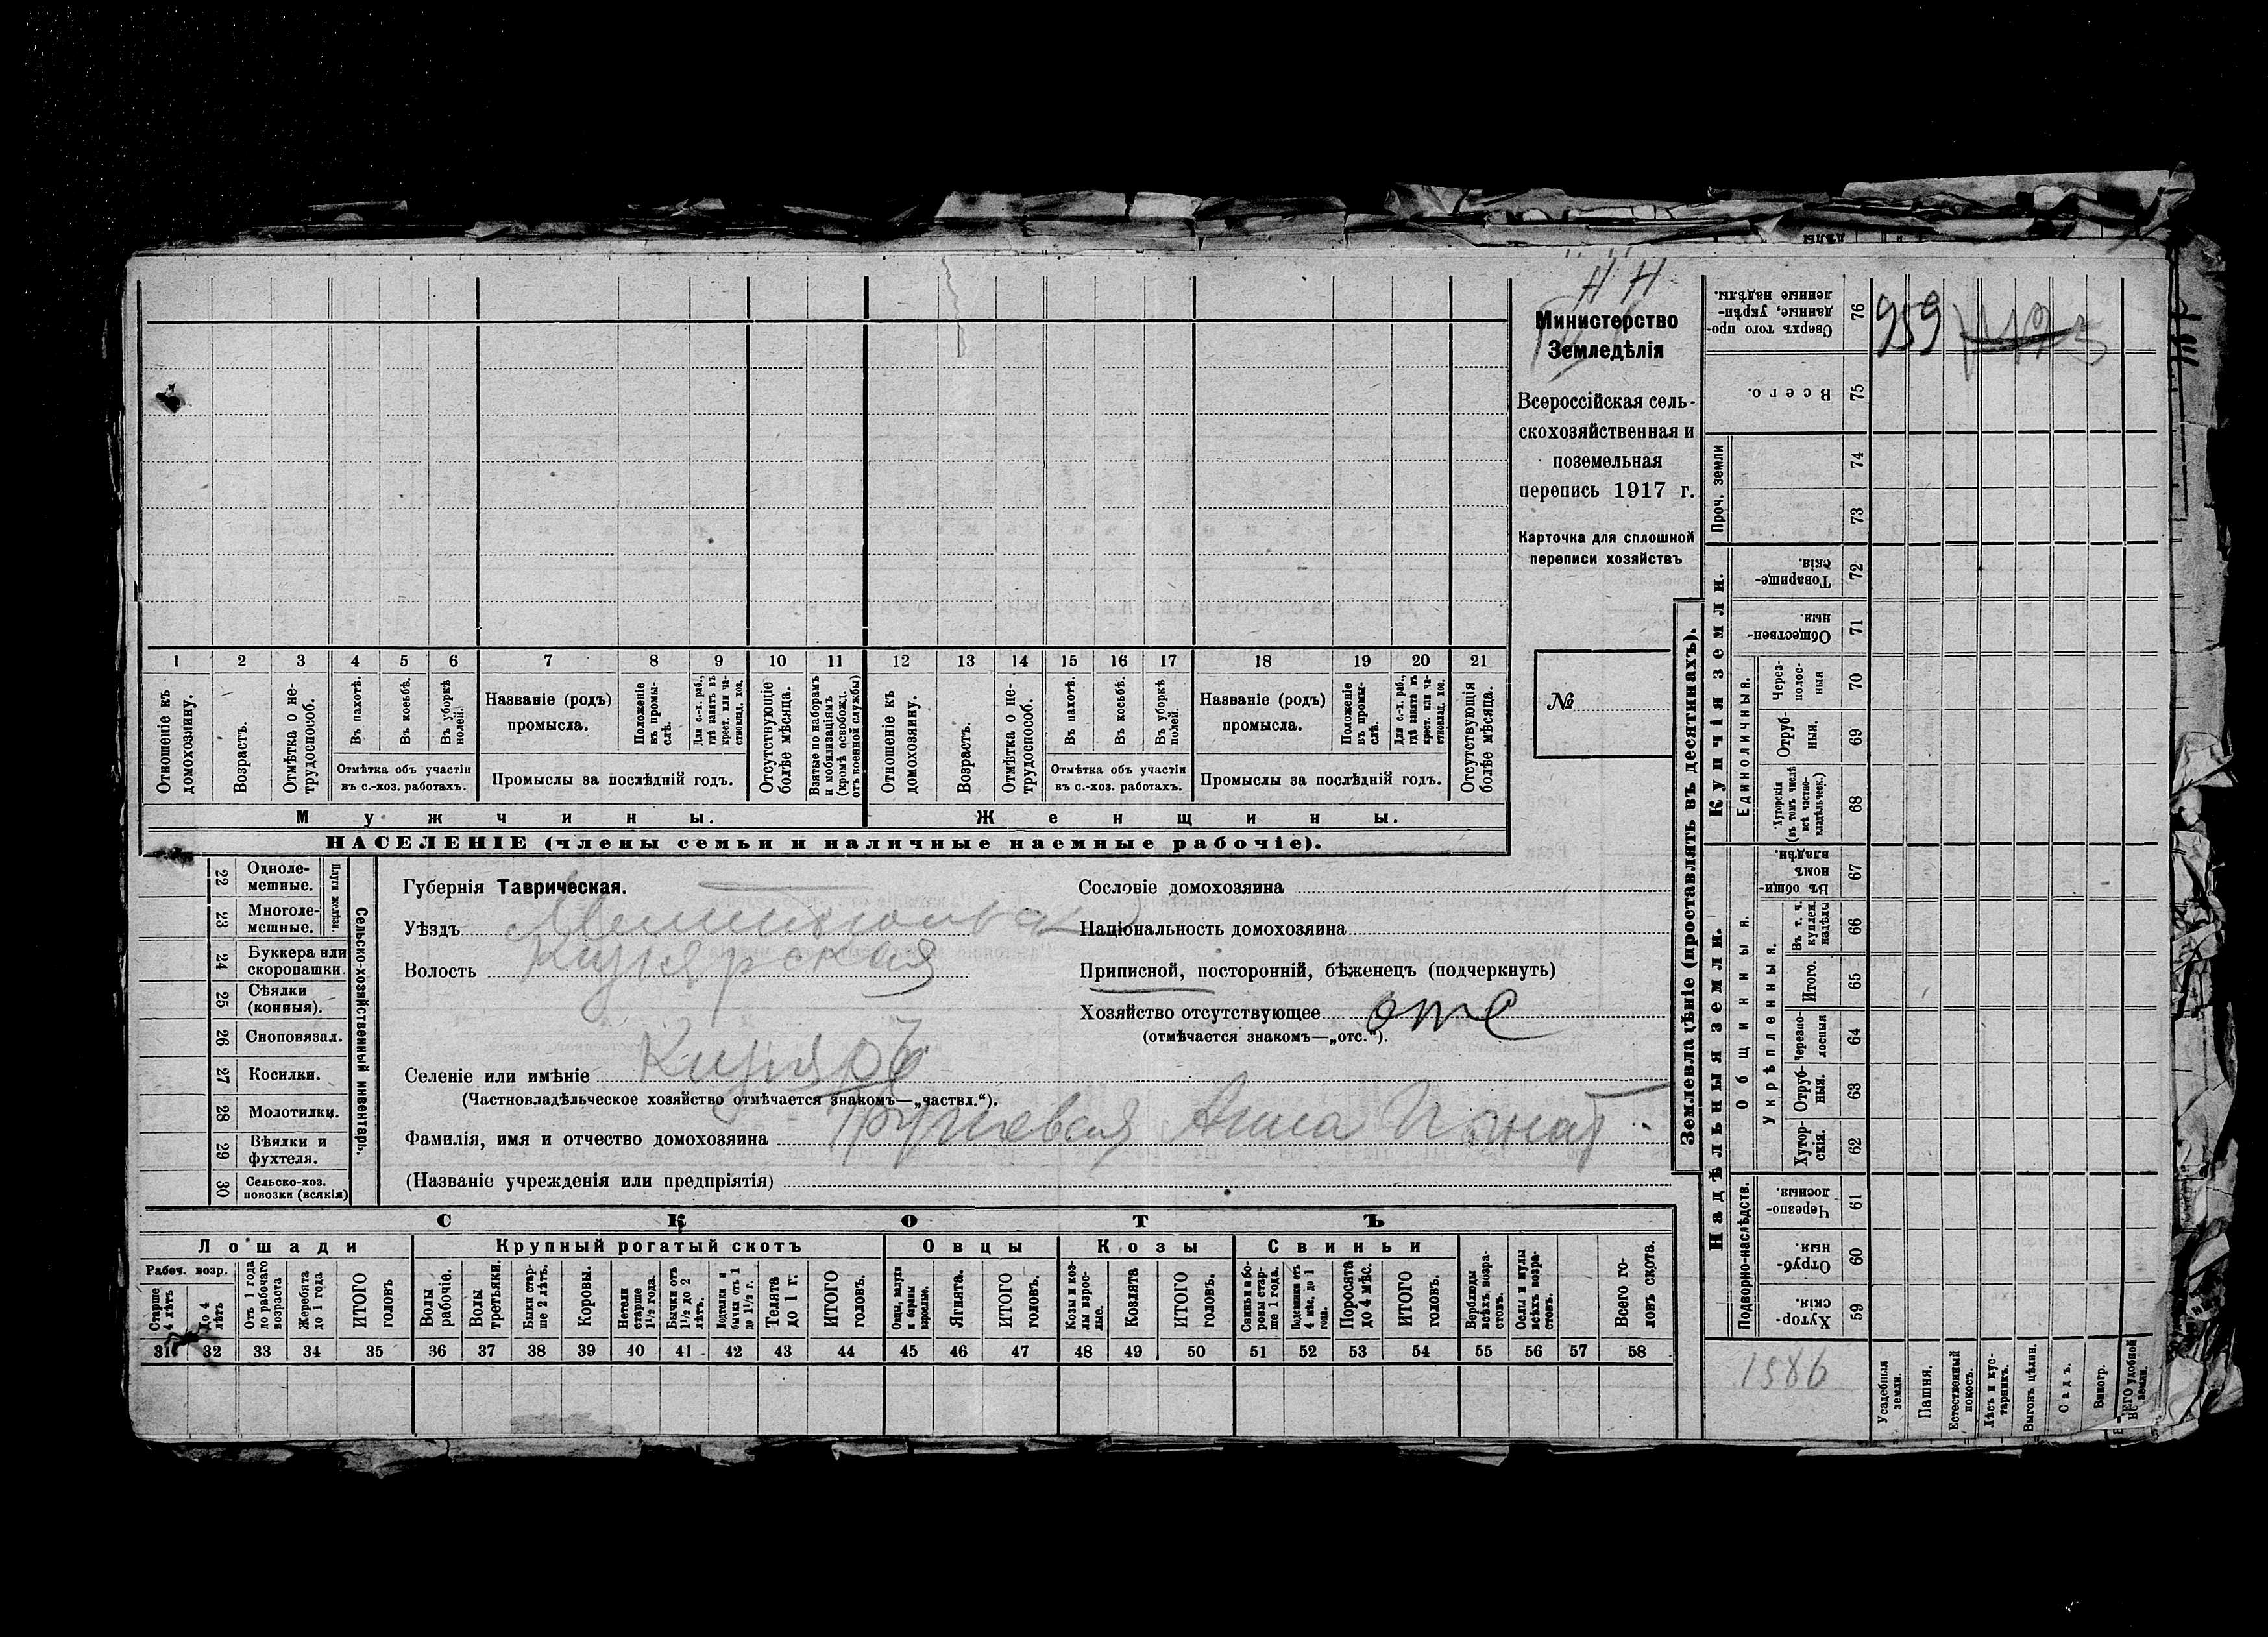 Н Н
Министерство
Земледѣлія
Всероссійская сель-
скохозяйственная и
поземельная
перепись 1917 г.
Карточка для сплошной
переписи хозяйствъ
№
1 2 3 4 5 6 7 8 9 10 11 12 13 14 15 16 17 18 19 20 21
Отношеніе къ домохозяину.
Возрастъ.
Отмѣтка о не-трудоспособ.
Въ пахотѣ.
Въ косьбѣ.
Въ уборкѣ полей.
Отмѣтка объ участіи
въ с.-хоз. работахъ.
Названіе (родъ)
промысла.
Положеніе въ промы-слѣ.
Для с.-х. раб., гдѣ занятъ въ крест. или ча-стновлад. хоз.
Промыслы за послѣдній годъ.
Отсутствующіе болѣе мѣсяца.
Взятые по наборамъ и мобилизаціямъ (кромѣ освобожд. отъ военной службы)
Отношеніе къ домохозяину.
Возрастъ.
Отмѣтка о не-трудоспособ.
Въ пахотѣ.
Въ косьбѣ.
Въ уборкѣ полей.
Отмѣтка объ участіи
въ с.-хоз. работахъ.
Названіе (родъ)
промысла.
Положеніе въ промы-слѣ.
Для с.-х. раб., гдѣ занятъ въ крест. или ча-стновлад. хоз.
Промыслы за послѣдній годъ.
Отсутствующія болѣе мѣсяца.
Мужчины.
Женщины.
НАСЕЛЕНІЕ (члены семьи и наличные наемные рабочіе).
22 Одноле-мешные.
23 Многоле-мешные.
Плуги желѣзн.
24 Буккера или скоропашки.
25 Сѣялки (конныя).
26 Сноповязал.
27 Косилки.
28 Молотилки.
29 Вѣялки и фухтеля.
30 Сельско-хоз. повозки (всякія)
Сельско-хозяйственный инвентарь.
Губернія Таврическая.
Уѣздъ
Волость
Селеніе или имѣніе
(Частновладѣльческое хозяйство отмѣчается знакомъ—„частвл.“).
Фамилія, имя и отчество домохозяина Анна
(Названіе учрежденія или предпріятія)
Сословіе домохозяина
Національность домохозяина
Приписной, посторонній, бѣженецъ (подчеркнуть)
Хозяйство отсутствующее отс
(отмѣчается знакомъ—„отс.“).
СКОТЪ
Лошади
Крупный рогатый скотъ
Овцы
Козы
Свиньи
Рабоч. возр.
Старше 4 лѣтъ
До 4 лѣтъ
Отъ 1 года до рабочаго возраста
Жеребята до 1 года
ИТОГО головъ
Волы рабочіе.
Волы третьяки.
Быки стар-ше 2 лѣтъ.
Коровы.
Нетели старше 1½ года.
Бычки отъ 1½ до 2 лѣтъ.
Подтелки и бычки отъ 1 до 1½ г.
Телята до 1 г.
ИТОГО головъ.
Овцы, валухи и бараны взрослые.
Ягнята.
ИТОГО головъ.
Козы и коз-лы взрос-лые.
Козлята
ИТОГО головъ.
Свиньи и бо-ровы стар-ше 1 года.
Подсвинки отъ 4 мѣс. до 1 года.
Поросята до 4 мѣс.
ИТОГО головъ.
Верблюды всѣхъ возра-стовъ.
Ослы и мулы всѣхъ возра-стовъ.
Всего го-ловъ скота.
31 32 33 34 35 36 37 38 39 40 41 42 43 44 45 46 47 48 49 50 51 52 53 54 55 56 57 58
Землевладѣніе (проставлять въ десятинахъ).
Купчія земли.
Надѣльныя земли.
Сверхъ того про-данные, укрѣп-ленные надѣлы. 76
959
Всего. 75
Проч. земли
74
73
Товарище-скія. 72
Обществен-ныя. 71
Единоличныя.
Черезполос-ныя 70
Отруб-ныя. 69
Хуторскія (въ томъ числѣ всѣ частно-владѣльческ.) 68
Общинныя.
Въ общин-номъ владѣн. 67
Укрѣпленныя.
Въ т. ч. куплен. надѣлы 66
Итого. 65
Черезпо-лосныя 64
Отруб-ныя. 63
Хутор-скія. 62
Подворно-наслѣдств.
Черезпо-лосныя. 61
Отруб-ныя. 60
Хутор-скія. 59
1586
Усадебныя земли.
Пашня.
Естественный покосъ.
Лѣсъ и кус-тарникъ.
Выгонъ цѣлин.
Садъ.
Виногр.
удобной земли.